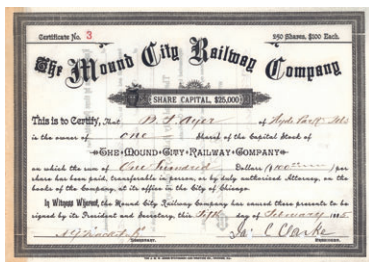 Certificate No. 3
250 Shares, $100 Each.
The Mound City Railway Company
SHARE CAPITAL, $25,000
This is to Certify, That of Hyde Park
is the owner of one Share of the Capital Stock of
THE MOUND CITY RAILWAY COMPANY
on which the sum of One Hundred Dollars ($100) per
share has been paid, transferable in person, or by duly authorized Attorney, on the
books of the Company, at its office in the City of Chicago.
In Witness Whereof, the Mound City Railway Company has caused these presents to be
signed by its President and Secretary, this Fifth day of February
Clarke
SECRETARY.
PRESIDENT.